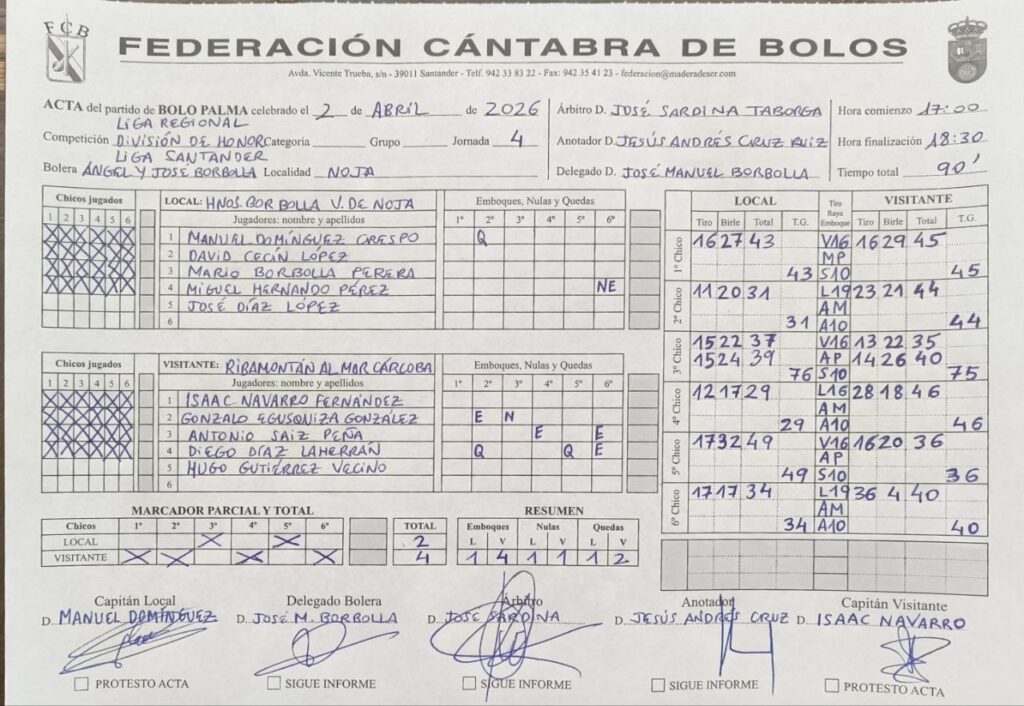 FCB
FEDERACIÓN CÁNTABRA DE BOLOS
Avda. Vicente Trueba, s/n - 39011 Santander - Telf. 942 33 83 22 - Fax: 942 35 41 23 - federacion@maderadeser.com
ACTA del partido de BOLO PALMA celebrado el 2 de ABRIL de 2026 Árbitro D. JOSÉ SARDINA TABORGA Hora comienzo 17:00
LIGA REGIONAL
Competición DIVISIÓN DE HONOR Categoria Grupo Jornada 4 Anotador D. JESÚS ANDRÉS CRUZ RUIZ Hora finalización 18:30
LIGA SANTANDER
Bolera ÁNGEL Y JOSÉ BORBOLLA Localidad NOJA Delegado D. JOSÉ MANUEL BORBOLLA Tiempo total 90'
Chicos jugados LOCAL: HNOS. BORBOLLA V. DE NOJA Emboques, Nulas y Quedas
1 2 3 4 5 6 Jugadores: nombre y apellidos 1º 2º 3º 4º 5º 6º
1 MANUEL DOMÍNGUEZ CRESPO Q
2 DAVID CECÍN LÓPEZ
3 MARIO BORBOLLA PERERA
4 MIGUEL HERNANDO PÉREZ NE
5 JOSÉ DÍAZ LÓPEZ
6
Chicos jugados VISITANTE: RIBAMONTÁN AL MAR CARCOBA Emboques, Nulas y Quedas
1 2 3 4 5 6 Jugadores: nombre y apellidos 1º 2º 3º 4º 5º 6º
1 ISAAC NAVARRO FERNÁNDEZ
2 GONZALO EGUSQUIZA GONZÁLEZ E N
3 ANTONIO SAIZ PEÑA E E
4 DIEGO DÍAZ LAHERRÁN Q Q E
5 HUGO GUTIÉRREZ VECINO
6
MARCADOR PARCIAL Y TOTAL
Chicos 1º 2º 3º 4º 5º 6º TOTAL
LOCAL X X 2
VISITANTE X X X X 4
RESUMEN
Emboques Nulas Quedas
L V L V L V
1 4 1 1 1 2
LOCAL Tiro Raya Emboque VISITANTE
Tiro Birle Total T.G. Tiro Birle Total T.G.
1º Chico 16 27 43 V16 16 29 45
MP
43 S10 45
2º Chico 11 20 31 L19 23 21 44
AM
31 A10 44
3º Chico 15 22 37 V16 13 22 35
15 24 39 AP 14 26 40
76 S10 75
4º Chico 12 17 29 L16 28 18 46
AM
29 A10 46
5º Chico 17 32 49 V16 16 20 36
AP
49 S10 36
6º Chico 17 17 34 L19 36 4 40
AM
34 A10 40
Capitán Local Delegado Bolera Árbitro Anotador Capitán Visitante
D. MANUEL DOMÍNGUEZ D. JOSÉ M. BORBOLLA D. JOSÉ SARDINA D. JESÚS ANDRÉS CRUZ D. ISAAC NAVARRO
PROTESTO ACTA SIGUE INFORME SIGUE INFORME SIGUE INFORME PROTESTO ACTA